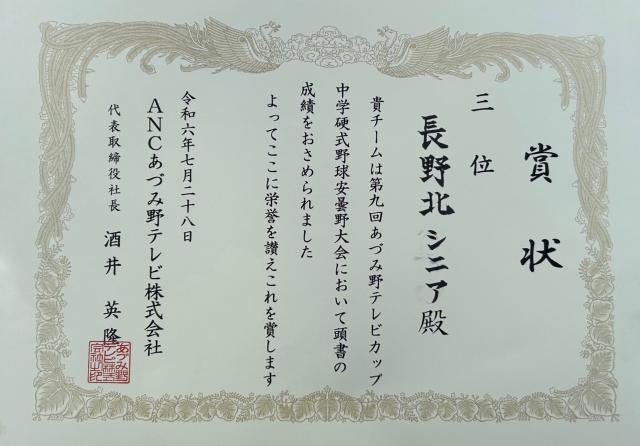 賞状
三位
長野北シニア殿
貴チームは第九回あづみ野テレビカップ
中学硬式野球安曇野大会において頭書の
成績をおさめられました
よってここに栄誉を讃えこれを賞します
令和六年七月二十八日
ANCあづみ野テレビ株式会社
代表取締役社長 酒井英隆